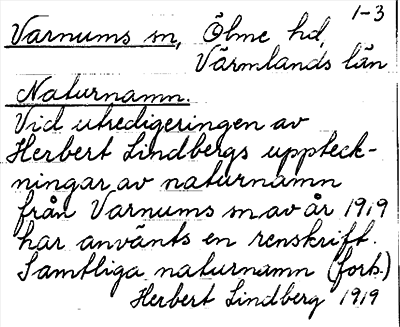 1-3
Varnums sn, Ölme hd,
Värmlands län
Naturnamn.
Vid utredigeringen av
Herbert Lindbergs uppteck-
ningar av naturnamn
från Varnums sn av år 1919
har använts en renskrift.
Samtliga naturnamn (forts.)
Herbert Lindberg 1919